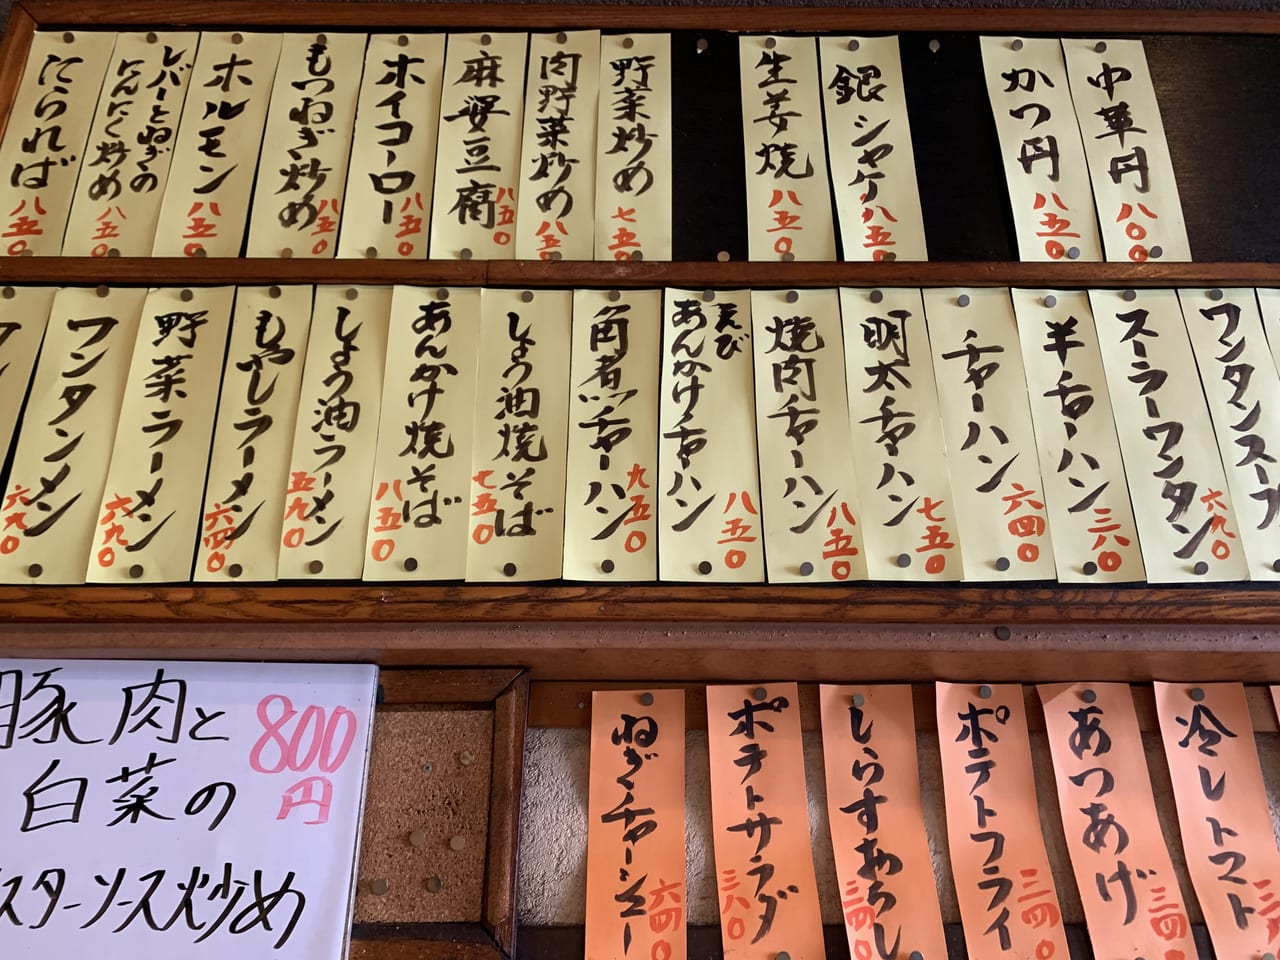 中華丼
八〇〇
かつ丼
八五〇
銀シャケ
八五〇
生姜焼
八五〇
野菜炒め
七五〇
肉野菜炒め
八五〇
麻婆豆腐
八五〇
ホイコーロー
八五〇
もつねぎ炒め
八五〇
ホルモン
八五〇
レバーとねぎの
にんにく炒め
八五〇
にられば
八五〇
ワンタンスープ
スーラーワンタン
六九〇
半チャーハン
三六〇
チャーハン
六四〇
明太チャーハン
七五〇
焼肉チャーハン
八五〇
えび
あんかけチャーハン
八五〇
角煮チャーハン
九五〇
しょう油焼そば
七五〇
あんかけ焼そば
八五〇
しょう油ラーメン
五九〇
もやしラーメン
六四〇
野菜ラーメン
六九〇
ワンタンメン
六九〇
冷しトマト
あつあげ
三四
ポテトフライ
三四〇
しらすおろし
三四〇
ポテトサラダ
三八〇
ねぎチャーシュー
六四〇
豚肉と
白菜の
スターソース炒め
800
円